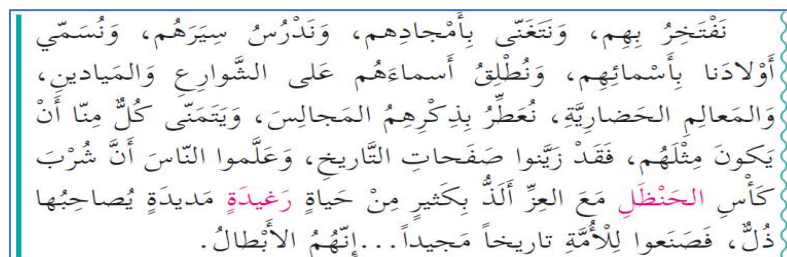 نَفْتَخِرُ بِهِم، وَنَتَغَنّى بِأَمْجادِهم، وَنَدْرُسُ سِيَرَهُم، وَنُسَمّي
أَوْلادَنا بِأَسْمائِهِم، وَنُطْلِقُ أَسماءَهُم عَلى الشَّوارِعِ وَالمَيادينِ،
وَالمَعالِمِ الحَضاريَّةِ، نُعَطِّرُ بِذِكْرِهِمُ المَجالِسَ، وَيَتَمَنّى كُلٌّ مِنّا أَنْ
يَكونَ مِثْلَهُم، فَقَدْ زَيَّنوا صَفَحاتِ التَّاريخِ، وَعَلَّموا النّاسَ أَنَّ شُرْبَ
كَأْسِ الحَنْظَلِ مَعَ العِزِّ أَلَذُّ بِكَثيرٍ مِنْ حَياةٍ رَغيدَةٍ مَديدَةٍ يُصاحِبُها
ذُلٌّ، فَصَنَعوا لِلْأُمَّةِ تاريخاً مَجيداً...إِنَّهُمُ الأَبْطالُ.